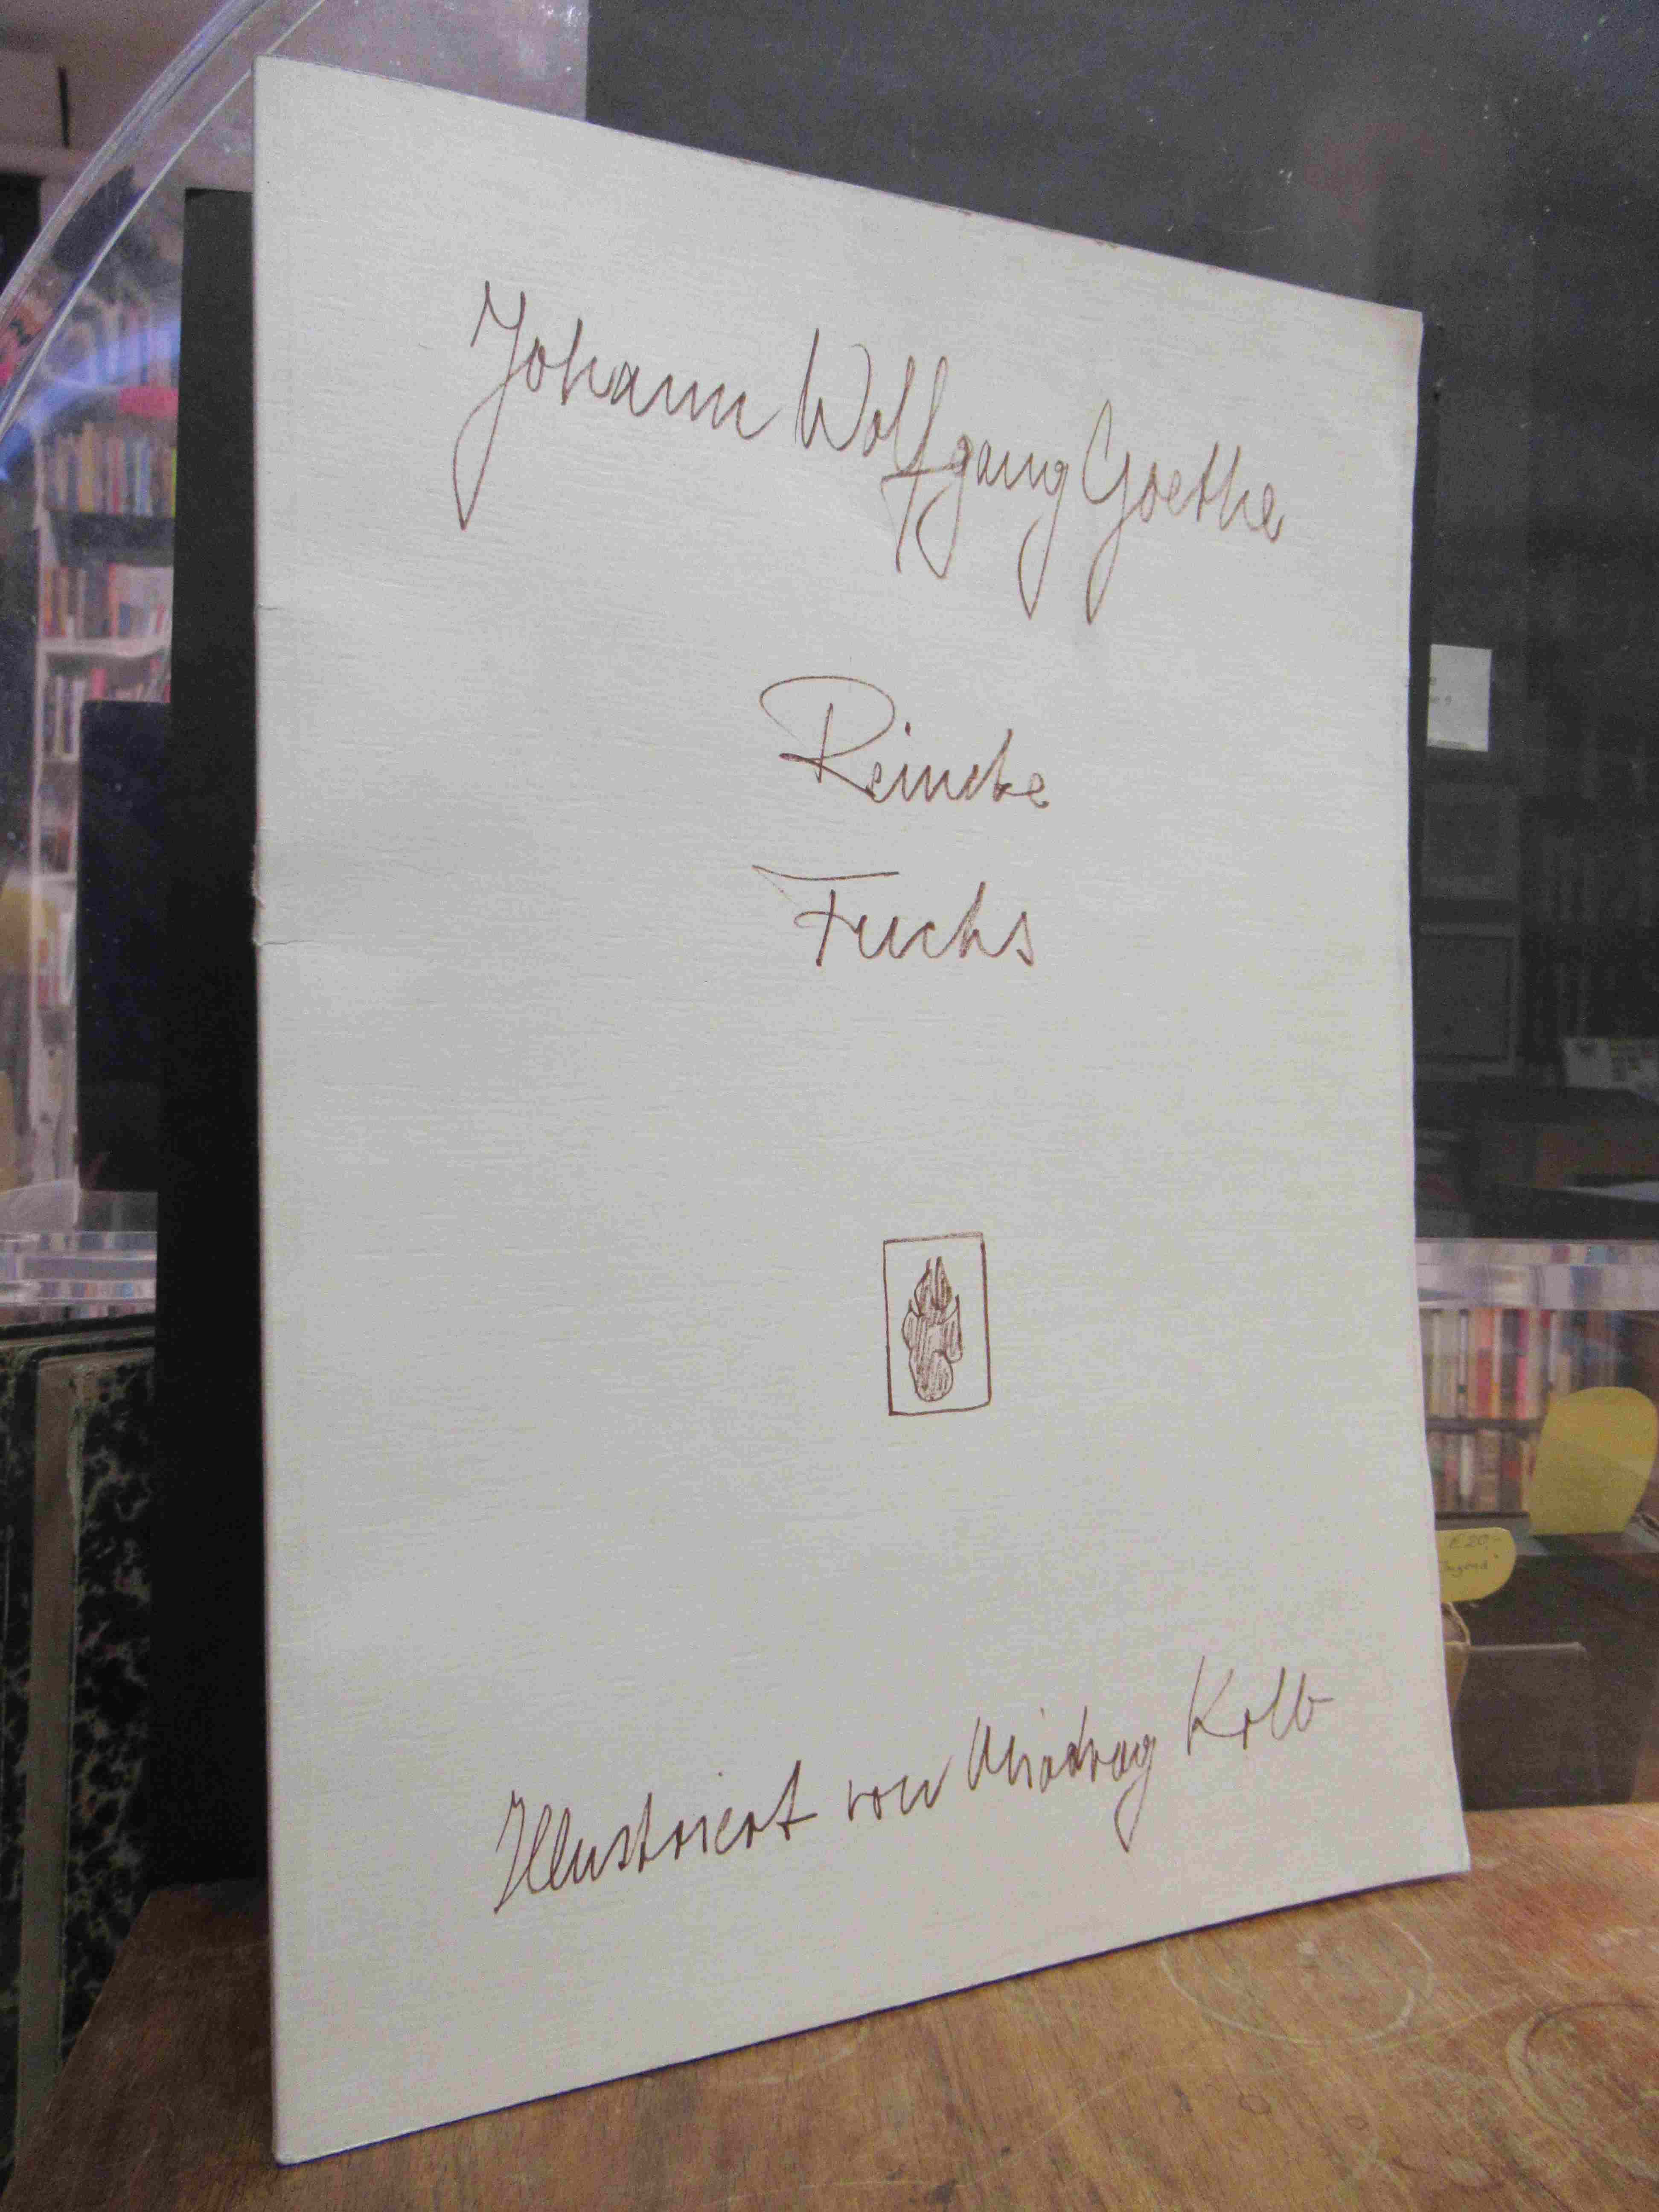 Johann Wolfgang Goethe
Reineke
Fuchs
Illustriert von Miodrag Kolb
€ 20,-